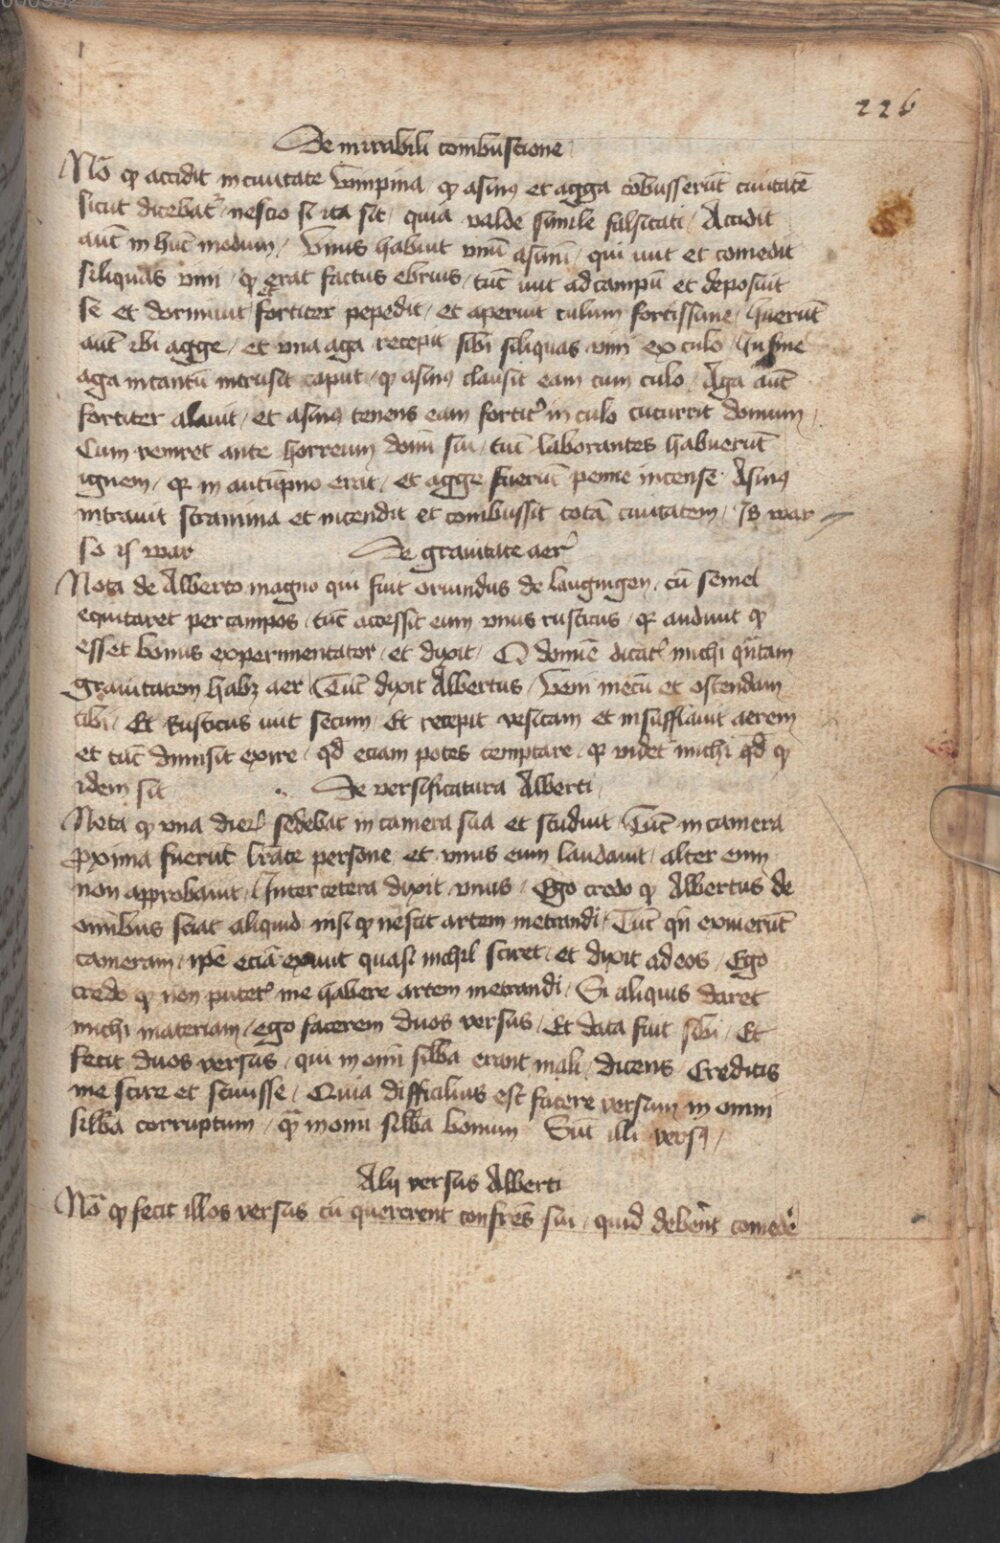 226
De mirabili combustione
Nō qꝫ accidit in ciuitate vimpina qꝫ asinꝰ et agga cōbusserūt ciuitatē
sicut dicebat᷑ nescio si ita sit / quia valde simile falsitati / Accidit
aūt in hūc modum / Vnus habuit vnū asinū / qui iuit et comedit
siliquas vini / qꝫ erat factus ebrius / tūc iuit ad campū et deposuit
se et dormiuit / fortiter pepedit / et aperuit culum fortissime / fuerūt
aūt ibi agge / et vna aga recepit sibi siliquas vini ex culo / In fine
aga in tantū intrusit caput / qꝫ asinꝰ clausit eam cum culo / Aga aūt
fortiter alauit / et asinꝰ tenens eam fortit᷑ in culo cucurrit domum /
Cum veniret ante horreum domī sui / tūc laborantes habuerūt
ignem / qꝛ in autūpno erat / et agge fuerūt penne incense Asinꝰ
intrauit stramina et incendit et combussit totā ciuitatem / Is war
so is war De grauitate aer᷑
Nota de Alberto magno qui fuit oriundus de laugingen / cū semel
equitaret per campos / tūc accessit eum vnus rusticus / qꝛ audiuit qꝫ
esset bonus experimentator / et dixit / O domine dicat᷑ michi qn̄tam
grauitatem habꝫ aer / Tūc dixit Albertus / Veni mecū et ostendam
tibi / Et Rusticus iuit secum / Et recepit vesicam et insufflauit aerem
et tūc dimisit exire / qd̄ eciam potes temptare / qꝛ videt᷑ michi qd̄ qꝫ
idem sit De versificatura Alberti
Nota qꝫ vna dieꝝ sedebat in camera sua et studuit / Tūc in camera
ꝓxima fuerūt lr̄ate persone et vnus eum laudauit / alter eum
non approbauit / Inter cetera dixit vnus / Ego credo qꝫ Albertus de
omnibus sciat aliquid nisi qꝫ nescit artem metrandi / Tūc qn̄ exiuerūt
cameram / ip̄e eciā exiuit quasi nichil sciret / et dixit ad eos / Ego
credo qꝫ non putet᷑ me habere artem metrandi / Si aliquis daret
michi materiam / ego facerem duos versus / Et data fuit sibi / Et
fecit duos versus / qui in omī silba erant mali / dicens Creditis
me scire et sciuisse / Quia difficilius est facere versum in omni
silba corruptum / qꝫ in omī silba bonum Sūt illi versꝰ /
Alij versus Alberti
Nō qꝫ fecit illos versus cū quererent confr̄es sui / quid deben̄t comede᷑